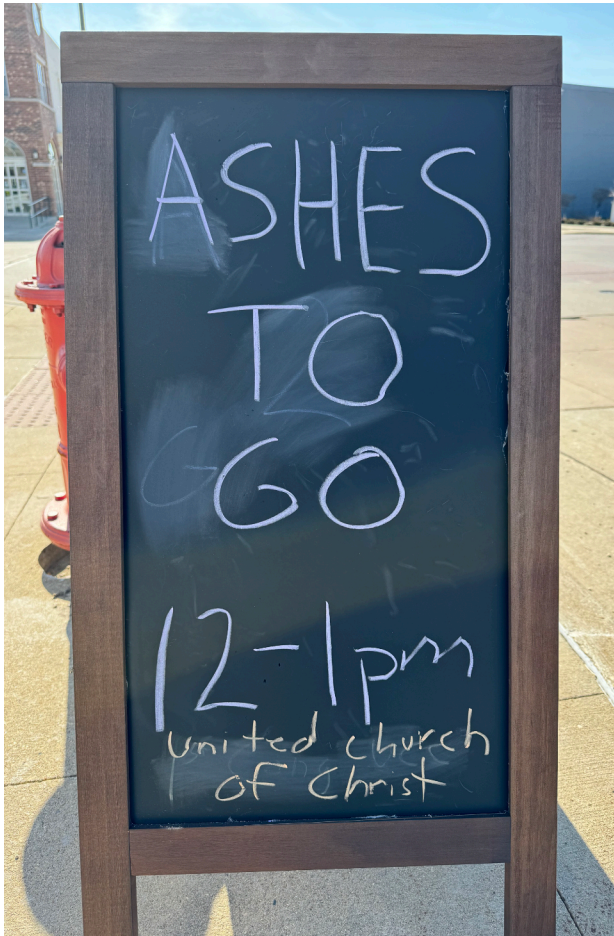 ASHES
TO
GO
12-1pm
united church
of Christ